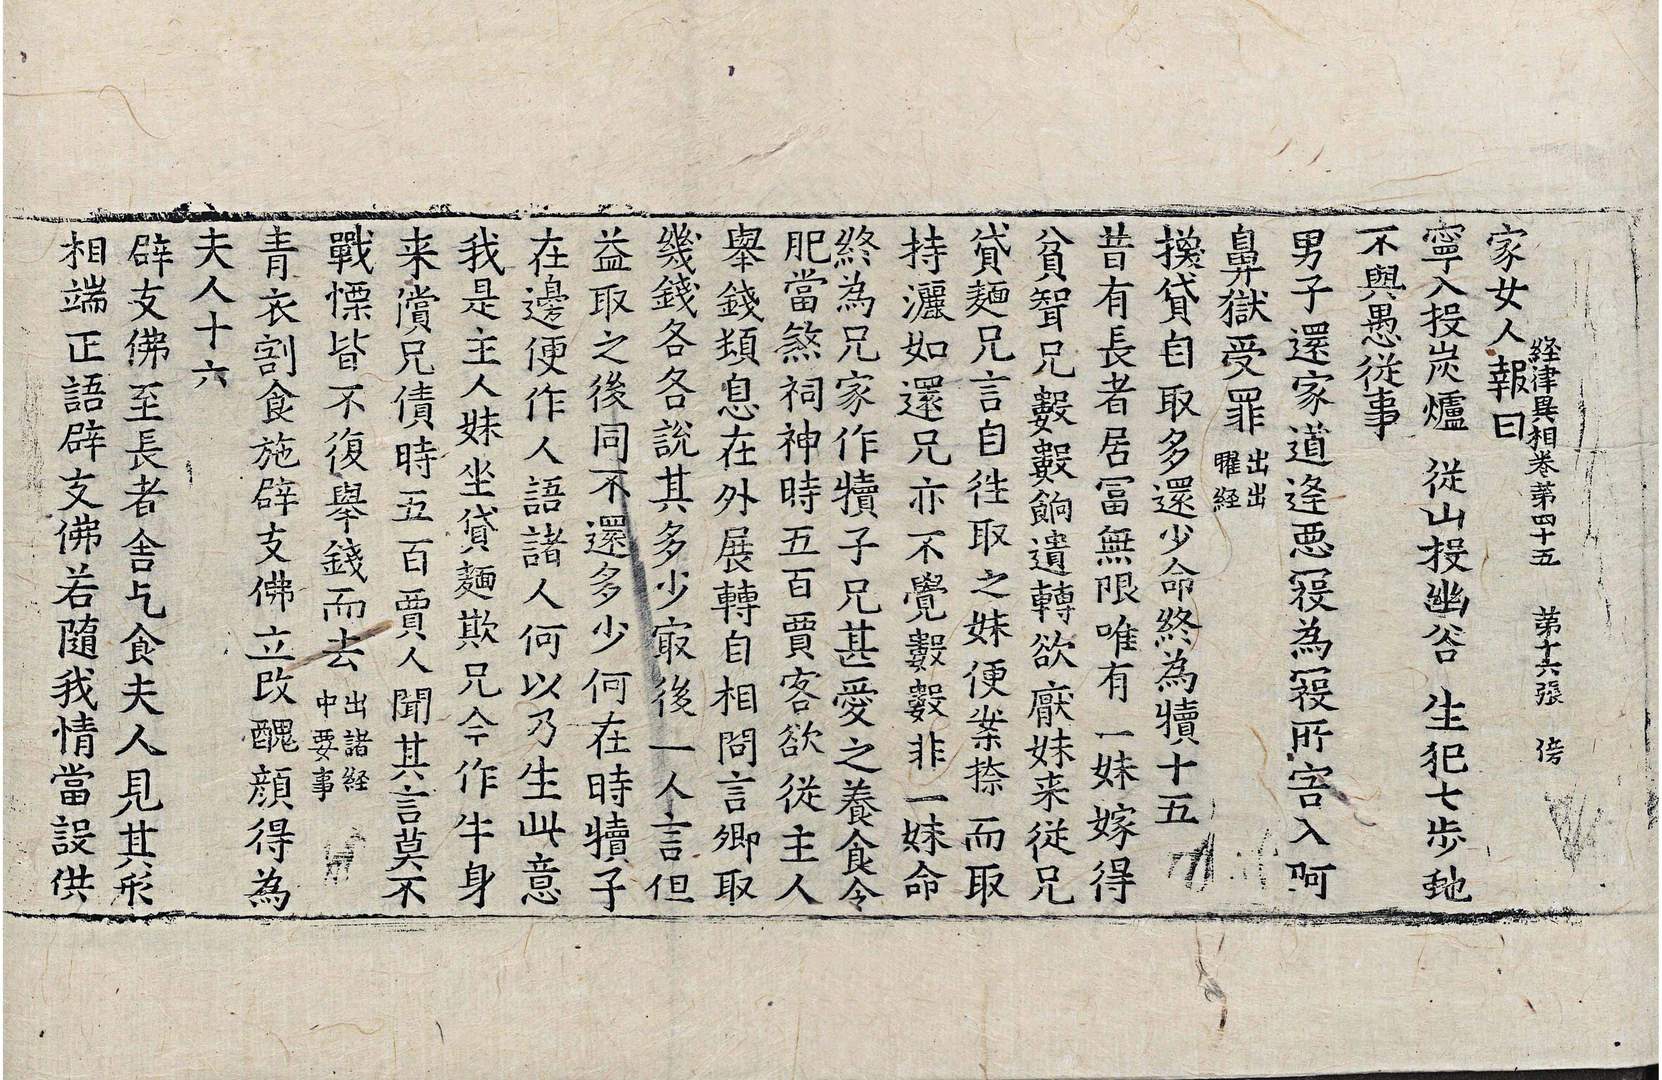 経律異相巻第四十五　第十六張　傍
家女人報曰
寧入投炭爐　從山投幽谷　生犯七步虵
不與愚從事
男子還家道逢惡寇為寇所害入阿
鼻獄受罪出出曜経
換貸自取多還少命終為犢十五
昔有長者居冨無限唯有一妹嫁得
貧聟兄數數餉遺轉欲厭妹来從兄
貸麺兄言自徃取之妹便案捺而取
持灑如還兄亦不覺數數非一妹命
終為兄家作犢子兄甚愛之養食令
肥當煞祠神時五百賈客欲從主人
舉錢頪息在外展轉自相問言卿取
幾錢各各說其多少冣後一人言但
益取之後同不還多少何在時犢子
在邊便作人語諸人何以乃生此意
我是主人妹坐貸麺欺兄今作牛身
来償兄債時五百賈人聞其言莫不
戰慄皆不復舉錢而去出諸経中要事
青衣割食施辟支佛立改醜顔得為
夫人十六
辟支佛至長者舎乞食夫人見其形
相端正語辟支佛若隨我情當設供